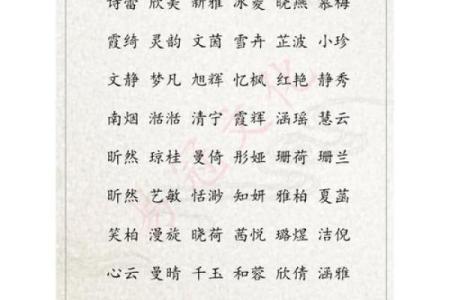 诗蕾 欣美 新雅 冰菱 晓燕 慕梅
霞绮 灵韵 文茵 雪卉 芷波 小珍
文静 梦凡 旭辉 忆枫 红艳 静秀
南烟 湉湉 清宁 霞辉 涵瑶 慧云
昕然 琼桂 曼倚 彤娅 珊荷 珊兰
昕然 艺敏 恬渺 知妍 雅柏 夏菡
笑柏 漫旋 晓荷 茜悦 璐煜 洁倪
心云 曼晴 千玉 和蓉 欣倩 涵雅